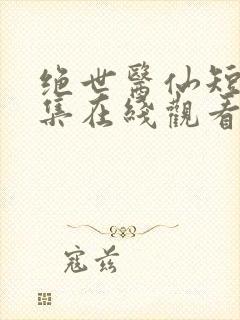 绝世醫仙短
集在綫觀看
寇兹